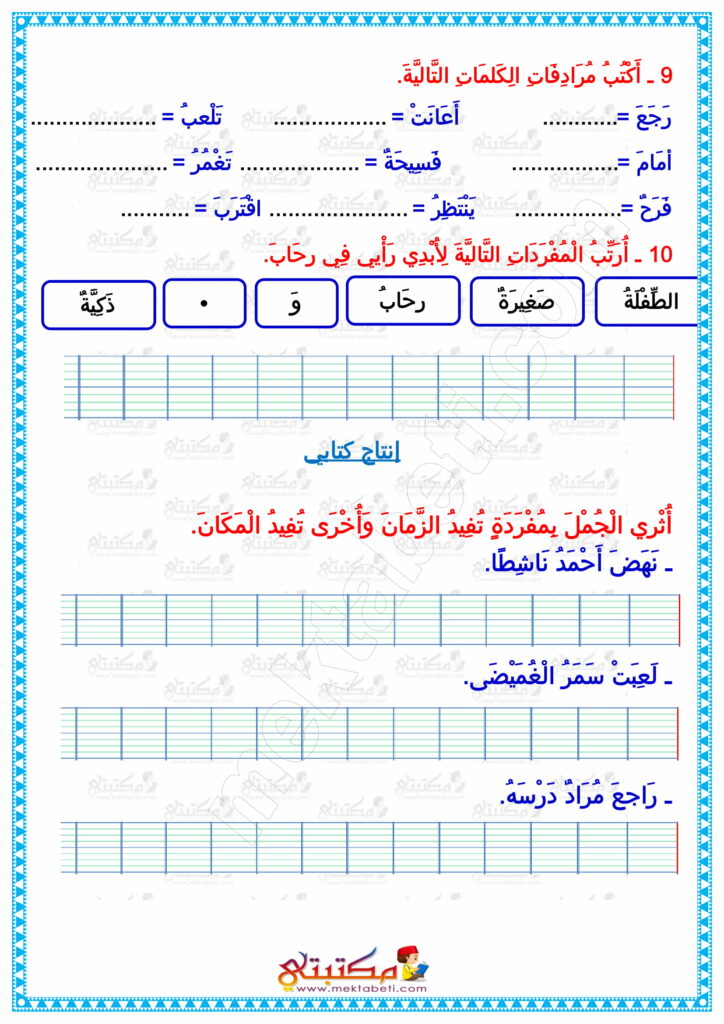 9 ـ أَكْتُبُ مُرَادِفَاتِ الِكَلمَاتِ التَّاليَّةَ.
رَجَعَ =............ أَعَانَتْ = .................. تَلْعبُ = ....................
أمَامَ =................. فَسِيحَةٌ = ................... تَغْمُرُ = .....................
فَرَحٌ =................. يَنْتَظِرُ = ...................... اقْتَرَبَ = ...........
10 ـ أُرَتِّبُ الْمُفْرَدَاتِ التَّاليَّةَ لِأُبْدِي رَأْيي فِي رحَابَ.
الطِّفْلَةُ صَغِيرَةٌ رحَابُ وَ • ذَكِيَّةٌ
إنتاج كتابي
أُثْري الْجُمْلَ بِمُفْرَدَةٍ تُفِيدُ الزَّمَانَ وَأُخْرَى تُفِيدُ الْمَكَانَ.
ـ نَهَضَ أَحْمَدُ نَاشِطًا.
ـ لَعِبَتْ سَمَرُ الْغُمَيْضَى.
ـ رَاجعَ مُرَادٌ دَرْسَهُ.
مكتبتي
www.mektabeti.com